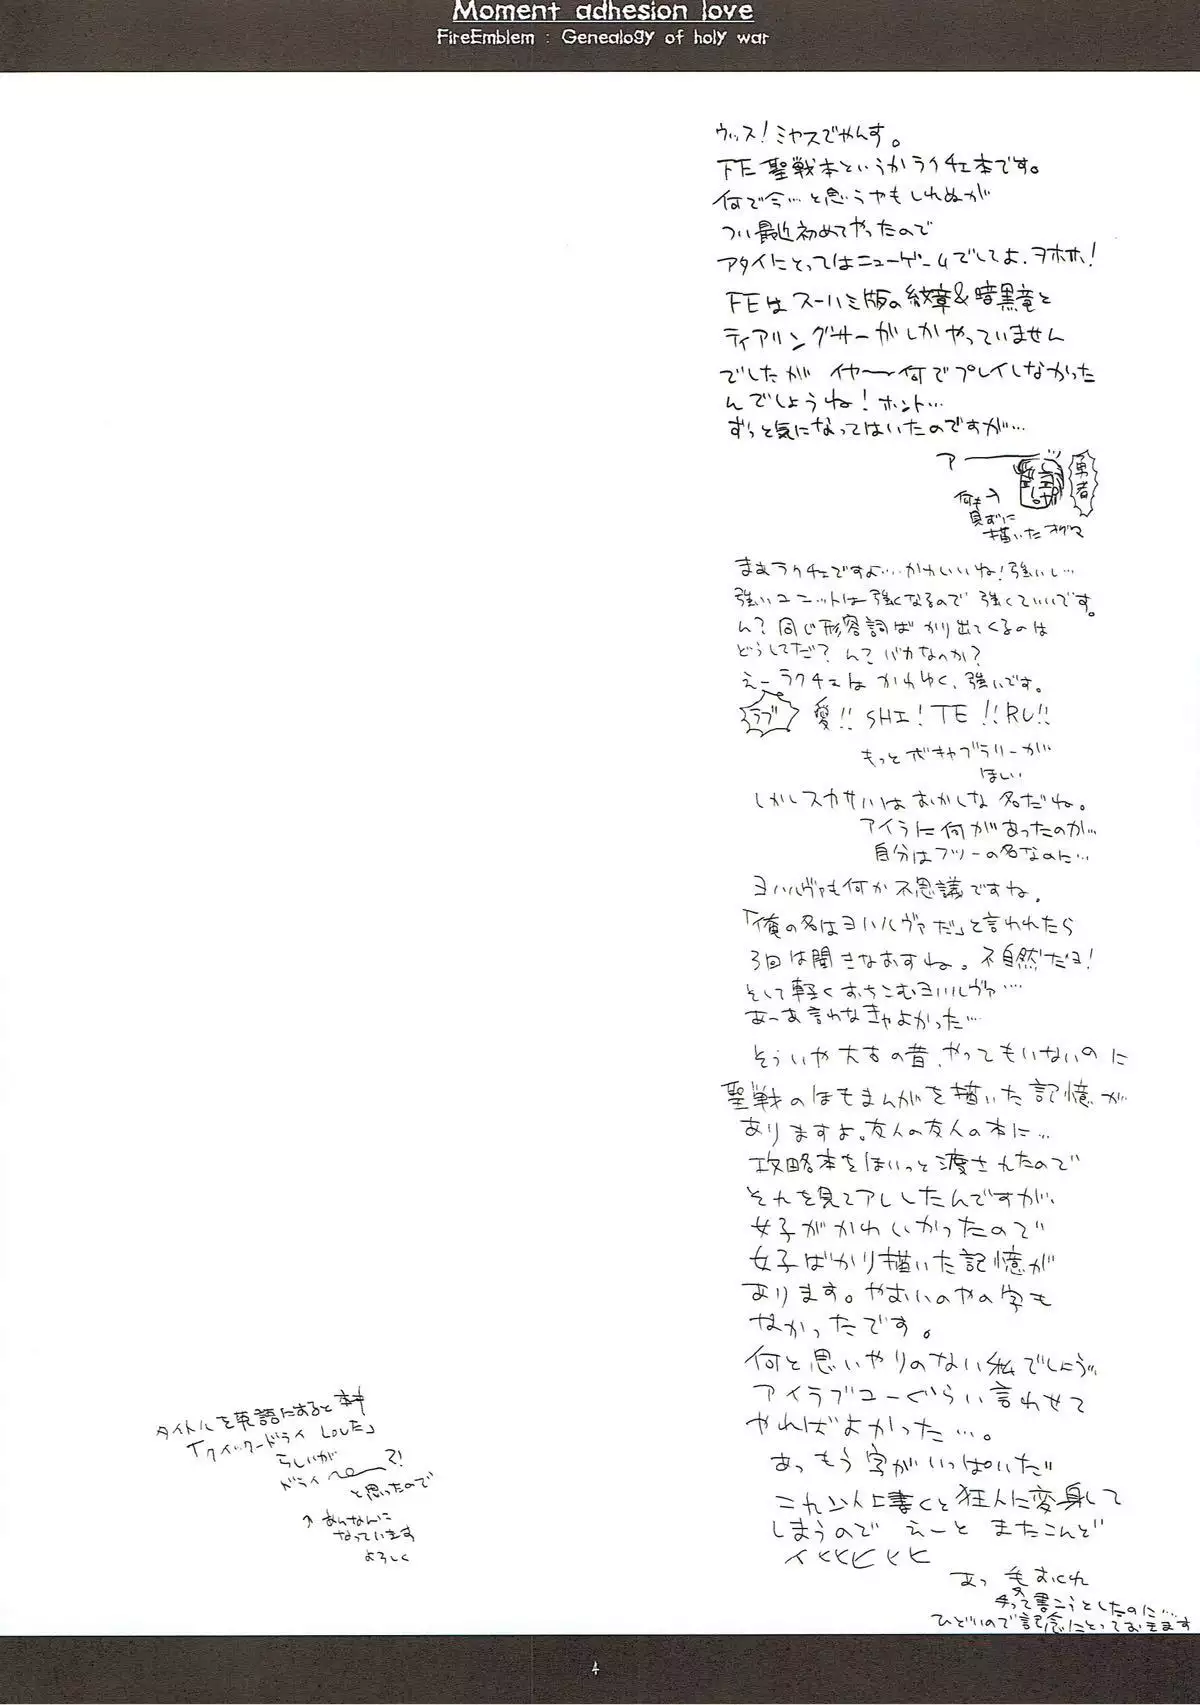 Moment adhesion love
FireEmblem : Genealogy of holy war
ウィッス!ミヤスでやんす。
FE聖戦本というかラクチェ本です。
何で今…と思うやもしれぬが
つい最近初めてやったので
アタイにとってはニューゲームでしてよ.ヲホホ!
FEはスーハミ版の紋章&暗黒竜と
ティアリングサーガしかやっていません
でしたが イヤ〜何でプレイしなかった
んでしょうね!ホント…
ずっと気になってはいたのですが…
アー
勇者
何も
見ずに
描いたオグマ
まあラクチェですよ…かわいいね!強いし…
強いユニットは強くなるので強くていいです。
ん?同じ形容詞ばかり出てくるのは
どうしてだ?んで バカなのか?
えーラクチェはかわゆく、強いです。
ラブ
愛!! SHI!TE!!RU!!
もっとボキャブラリーが
ほしい
しかしスカサハはおかしな名だね。
アイラに何があったのか…
自分はフツーの名なのに…
ヨハルヴァも何か不思議ですね。
「俺の名はヨハルヴァだ」と言われたら
3回は聞きなおすね。不自然だヨ!
そして軽くおちこむヨハルヴァ…
あーあ言わなきゃよかった…
そういや大古の昔、やってもいないのに
聖戦のほもまんがを描いた記憶が
ありますよ。友人の友人の本に…
攻略本をほいっと渡されたので
それを見てアレしたんですが、
女子がかわいかったので
女子ばかり描いた記憶が
あります。やおいのやの字も
なかったです。
何と思いやりのない私でしょう…
アイラブユーぐらい言わせて
やればよかった…。
あっもう字がいっぱいだ
これ以上書くと狂人に変身して
しまうので えーと またこんど
イヒヒヒヒヒ
あっ
って書こうとしたのに…
ひどいので記念にとっておきます
タイトルを英語にすると
「クイックードライ Loveだ」
らしいが
ドライ〜?!
と思ったので
↑あんなんに
なっています
よろしく
4